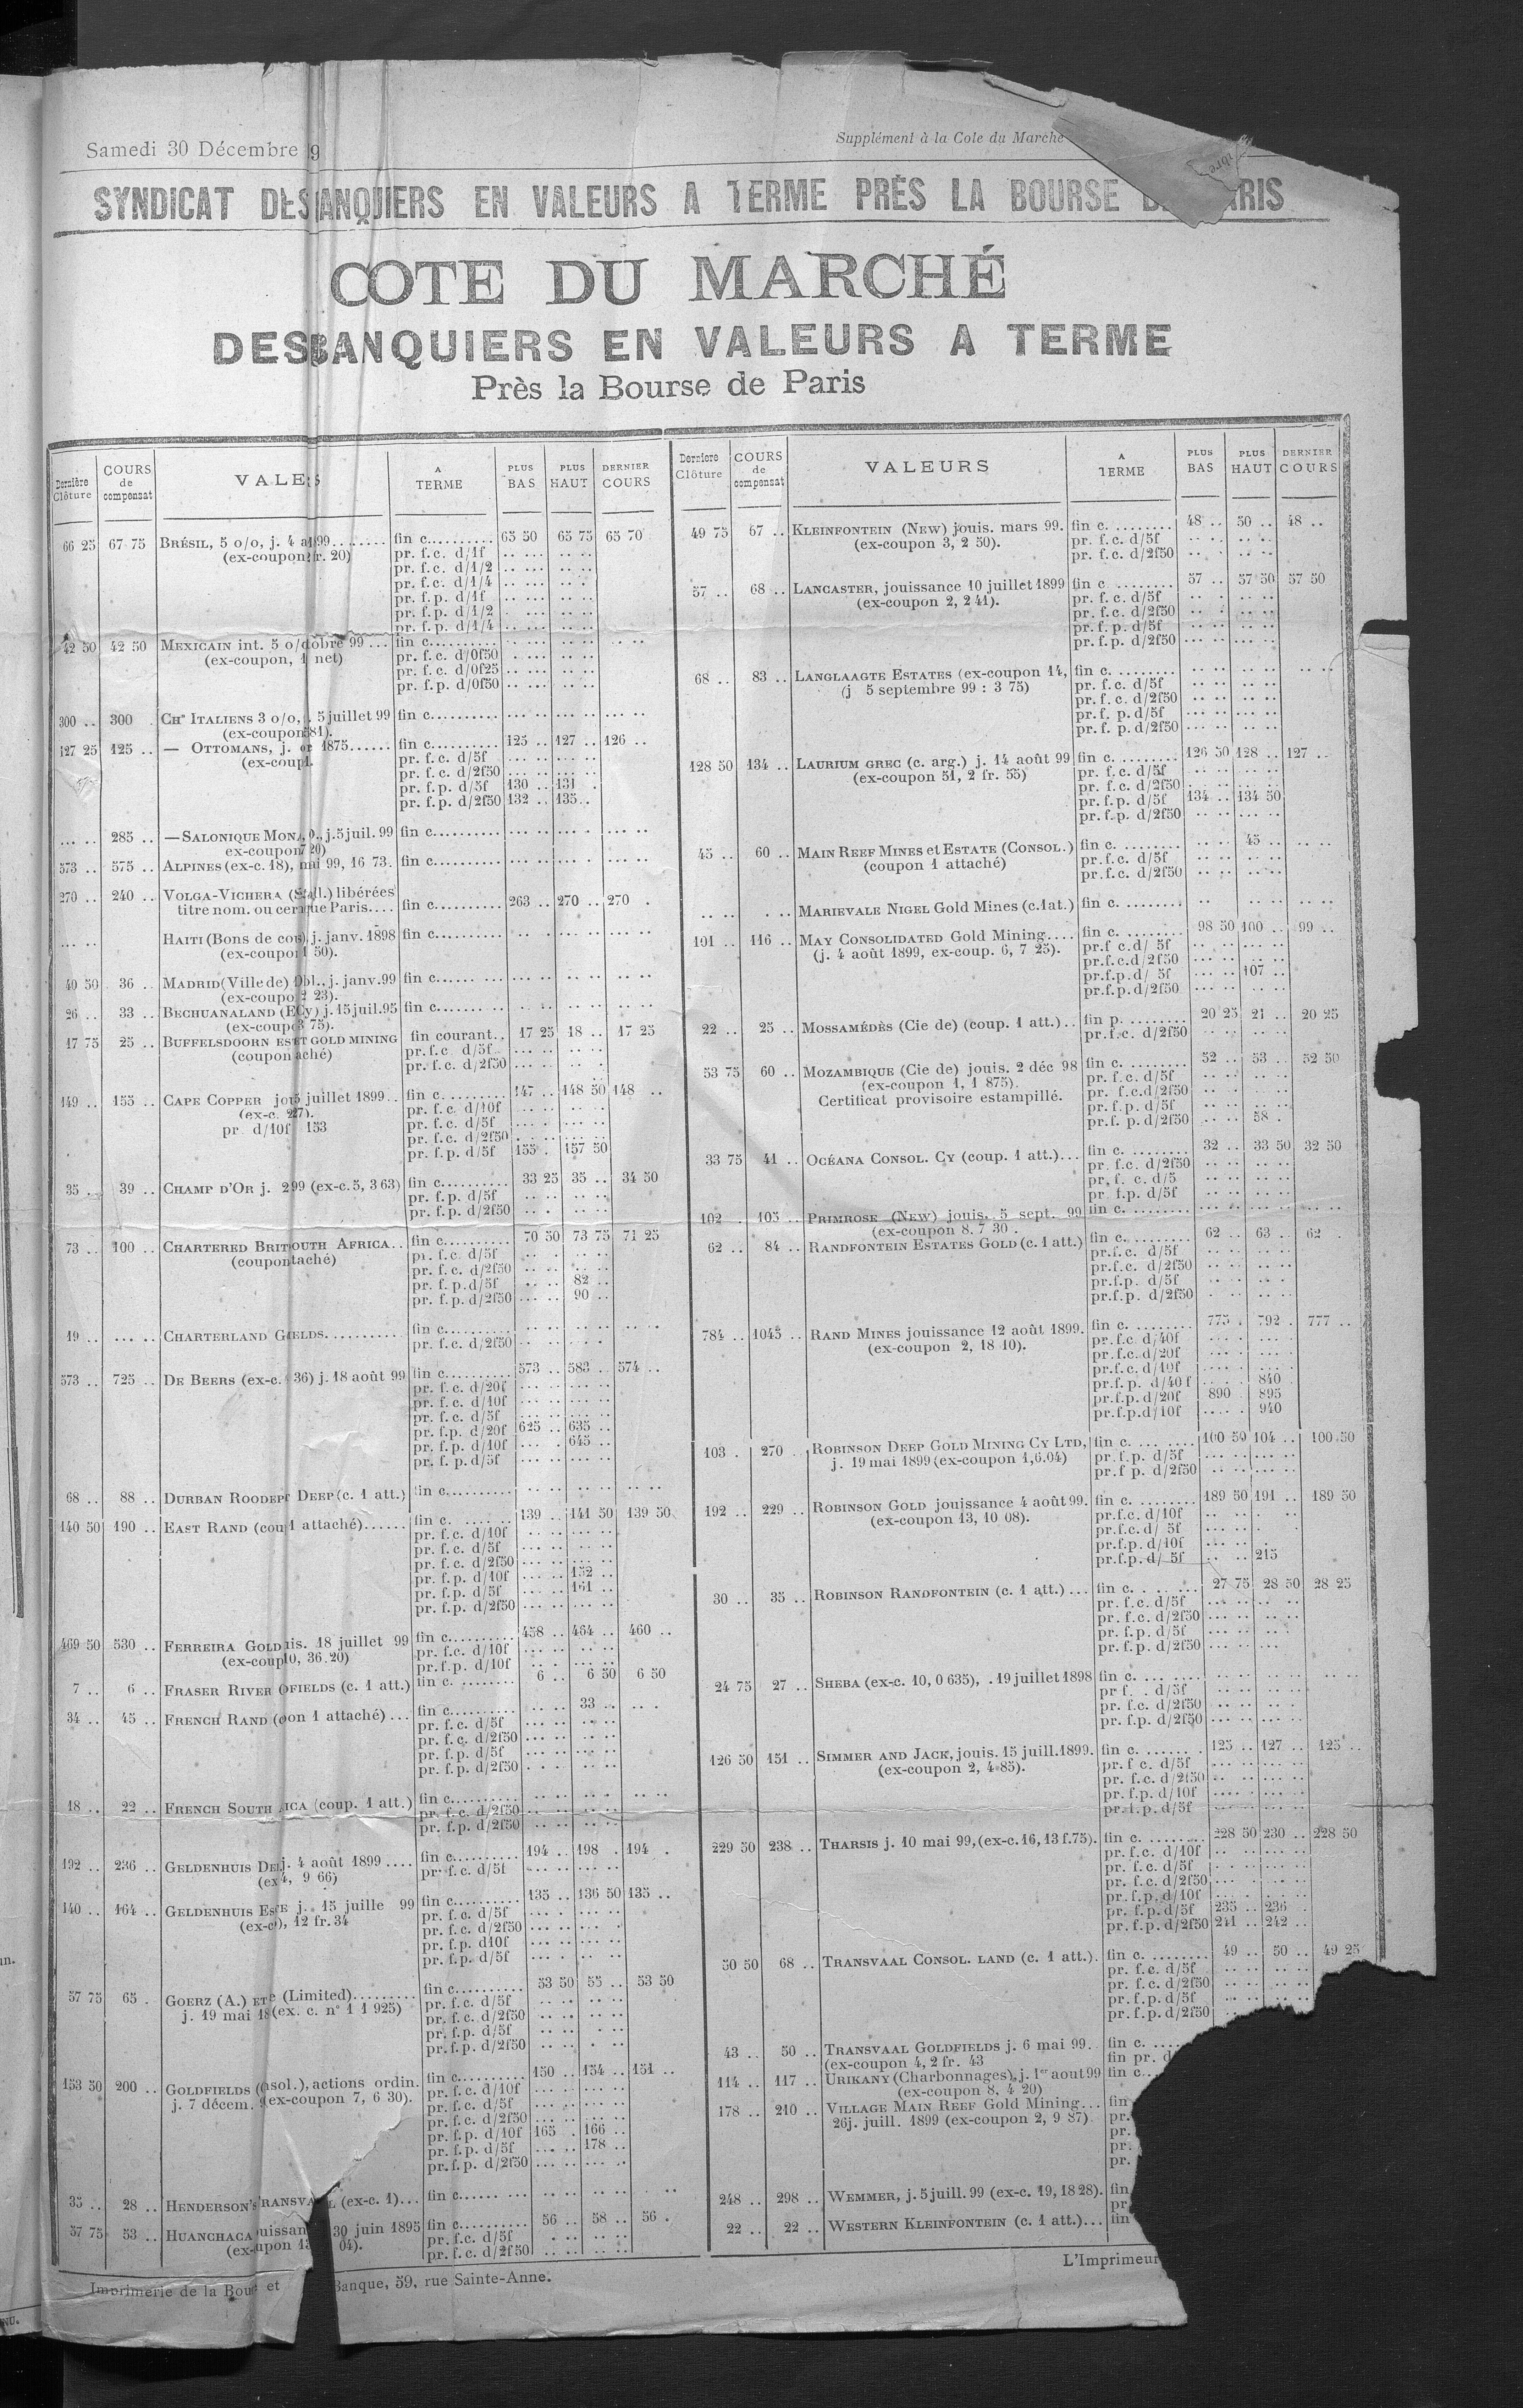 Samedi 30 Décembre 9
Supplément à la Cote du Marché
SYNDICAT DES ANQUIERS EN VALEURS A TERME PRÈS LA BOURSE D RIS
COTE DU MARCHÉ
DES BANQUIERS EN VALEURS A TERME
Près la Bourse de Paris
Dernière Clôture COURS de compensat VALE S A TERME PLUS BAS PLUS HAUT DERNIER COURS
66 25 67 75 BRÉSIL, 5 o/o, j. 4 a 99........ fin c.......... 65 50 65 75 65 70
(ex-coupon r. 20) pr. f.c. d/1f
pr. f.c. d/1/2
pr. f.c. d/1/4
pr. f.p. d/1f
pr. f.p. d/1/2
pr. f.p. d/1/4
42 50 42 50 MEXICAIN int. 5 o/ obre 99... fin c..........
(ex-coupon, 1 net) pr. f.c. d/0f50
pr. f.c. d/0f25
pr. f.p. d/0f50
300 .. 300 . CHns ITALIENS 3 o/o, . 5 juillet 99 fin c..........
(ex-coupon 81).
127 25 125 .. — OTTOMANS, j. 1875...... fin c.......... 125 .. 127 .. 126 ..
(ex-coup pr. f.c. d/5f
pr. f.c. d/2f50
pr. f.p. d/5f 130 .. 131 .
pr. f.p. d/2f50 132 .. 135..
.... .. 285 .. — SALONIQUE MON , j. 5 juil. 99 fin c..........
ex-coupon 20)
573 .. 575 .. ALPINES (ex-c. 18), mai 99, 16 73. fin c..........
270 .. 240 .. VOLGA-VICHERA ( ll.) libérées
titre nom. ou cer que Paris.... fin c.......... 263 .. 270 .. 270 .
HAITI (Bons de cou j. janv. 1898 fin c..........
(ex-coupo 50).
40 50 36 .. MADRID (Ville de) Obl., j. janv. 99 fin c..........
(ex-coupo 2 23).
26 .. 33 .. BECHUANALAND (E Cy) j. 15 juil. 95 fin c..........
(ex-coup 75).
17 75 25 .. BUFFELSDOORN EST T GOLD MINING fin courant.. 17 25 18 .. 17 25
(coupon aché) pr. f.c. d/5f
pr. f.c. d/2f50
149 .. 155 .. CAPE COPPER jo 5 juillet 1899.. fin c.......... 147 .. 148 50 148 ..
(ex-c. 27). pr. f.c. d/10f
pr. d/10f 153 pr. f.c. d/5f
pr. f.c. d/2f50
pr. f.p. d/5f 155 . 157 50
35 .. 39 .. CHAMP D'OR j. 2 99 (ex-c. 5, 3 63) fin c.......... 33 25 35 .. 34 50
pr. f.p. d/5f
pr. f.p. d/2f50
73 .. 100 .. CHARTERED BRIT OUTH AFRICA.. fin c.......... 70 50 73 75 71 25
(coupon taché) pr. f.c. d/5f
pr. f.c. d/2f50
pr. f.p. d/5f 82 ..
pr. f.p. d/2f50 90 ..
19 .. .... .. CHARTERLAND G IELDS........... fin c..........
pr. f.c. d/2f50
573 .. 725 .. DE BEERS (ex-c. 36) j. 18 août 99 fin c.......... 573 .. 583 .. 574 ..
pr. f.c. d/20f
pr. f.c. d/10f
pr. f.c. d/5f
pr. f.p. d/20f 625 .. 635 ..
pr. f.p. d/10f 645 ..
pr. f.p. d/5f
68 .. 88 .. DURBAN ROODEP DEEP (c. 1 att.) fin c..........
140 50 190 .. EAST RAND (cou 1 attaché)...... fin c. 139 .. 141 50 139 50
pr. f.c. d/10f
pr. f.c. d/5f
pr. f.c. d/2f50
pr. f.p. d/10f 152 ..
pr. f.p. d/5f 161 ..
pr. f.p. d/2f50
469 50 530 .. FERREIRA GOLD is. 18 juillet 99 fin c.......... 458 .. 464 .. 460 ..
(ex-coup 10, 36.20) pr. f.c. d/10f
pr. f.p. d/10f
7 .. 6 .. FRASER RIVER FIELDS (c. 1 att.) fin c. ........ 6 .. 6 50 6 50
34 .. 45 .. FRENCH RAND ( on 1 attaché)... fin c.......... 33 ..
pr. f.c. d/5f
pr. f.c. d/2f50
pr. f.p. d/5f
pr. f.p. d/2f50
18 .. 22 .. FRENCH SOUTH ICA (coup. 1 att.) fin c..........
pr. f.c. d/2f50
pr. f.p. d/2f50
192 .. 236 .. GELDENHUIS DE j. 4 août 1899.... fin c.......... 194 .. 198 . 194 .
(ex 4, 9 66) pr. f.c. d/5f
140 .. 164 .. GELDENHUIS ES E j. 15 juille 99 fin c.......... 135 .. 136 50 135 ..
(ex-c ), 12 fr. 34 pr. f.c. d/5f
pr. f.c. d/2f50
pr. f.p. d10f
pr. f.p. d/5f
57 75 65 . GOERZ (A.) ET e (Limited)......... fin c.......... 53 50 55 .. 53 50
j. 19 mai 18 (ex. c. n° 1 1 925) pr. f.c. d/5f
pr. f.c. d/2f50
pr. f.p. d/5f
pr. f.p. d/2f50
153 50 200 .. GOLDFIELDS ( nsol.), actions ordin. fin c.......... 150 .. 154 .. 151 ..
j. 7 décem. (ex-coupon 7, 6 30). pr. f.c. d/10f
pr. f.c. d/5f
pr. f.c. d/2f50
pr. f.p. d/10f 165 . 166 ..
pr. f.p. d/5f 178 ..
pr. f.p. d/2f50
35 .. 28 .. HENDERSON'S RANSVA L (ex-c. 1)... fin c..........
57 75 53 .. HUANCHACA uissan 30 juin 1895 fin c.......... 56 .. 58 .. 56 .
(ex- upon 1 04). pr. f.c. d/5f
pr. f.c. d/2f50
Imprimerie de la Bou et Banque, 59, rue Sainte-Anne.
Derniere Clôture COURS de compensat VALEURS A TERME PLUS BAS PLUS HAUT DERNIER COURS
49 75 67 .. KLEINFONTEIN (NEW) jouis. mars 99. fin c. ........ 48 .. 50 .. 48 ..
(ex-coupon 3, 2 50). pr. f.c. d/5f
pr. f.c. d/2f50
57 .. 68 .. LANCASTER, jouissance 10 juillet 1899 fin c ......... 57 .. 57 50 57 50
(ex-coupon 2, 2 41). pr. f.c. d/5f
pr. f.c. d/2f50
pr. f.p. d/5f
pr. f.p. d/2f50
68 .. 83 .. LANGLAAGTE ESTATES (ex-coupon 14, fin c. ........
(j 5 septembre 99 : 3 75) pr. f.c. d/5f
pr. f.c. d/2f50
pr. f. p. d/5f
pr. f. p. d/2f50
128 50 134 .. LAURIUM GREC (c. arg.) j. 14 août 99 fin c. ........ 126 50 128 .. 127 ..
(ex-coupon 51, 2 fr. 55) pr. f.c. d/5f
pr. f.c. d/2f50
pr. f.p. d/5f 134 .. 134 50
pr. f.p. d/2f50
45 .. 60 .. MAIN REEF MINES et ESTATE (CONSOL.) fin c. ........ 45 ..
(coupon 1 attaché) pr. f.c. d/5f
pr. f.c. d/2f50
MARIEVALE NIGEL Gold Mines (c.1at.) fin c. ........
101 .. 116 .. MAY CONSOLIDATED Gold Mining.... fin c. ........ 98 50 100 .. 99 ..
(j. 4 août 1899, ex-coup. 6, 7 25). pr.f c.d/ 5f
pr.f.c.d/2f50
pr.f.p.d/ 5f 107 ..
pr.f.p.d/2f50
22 .. 25 .. MOSSAMÉDÈS (Cie de) (coup. 1 att.).. fin p. ........ 20 25 21 .. 20 25
pr.f.c. d/2f50
53 75 60 .. MOZAMBIQUE (Cie de) jouis. 2 déc 98 fin c. ........ 52 .. 53 .. 52 50
(ex-coupon 1, 1 875). pr. f.c. d/5f
Certificat provisoire estampillé. pr. f.c.d/2f50
pr. f.p. d/5f
pr.f. p. d/2f50 58 .
33 75 41 .. OCÉANA CONSOL. CY (coup. 1 att.)... fin c. ........ 32 .. 33 50 32 50
pr. f.c. d/2f50
pr. f. c. d/5
pr f.p. d/5f
102 . 105 .. PRIMROSE (NEW) jouis. 5 sept. 99 fin c. ........
(ex-coupon 8. 7 30 .
62 .. 84 .. RANDFONTEIN ESTATES GOLD (c. 1 att.) fin c. ........ 62 .. 63 .. 62 .
pr.f.c. d/5f
pr.f.c. d/2f50
pr.f.p. d/5f
pr.f.p. d/2f50
784 .. 1045 .. RAND MINES jouissance 12 août 1899. fin c. ........ 775 . 792 . 777 ..
(ex-coupon 2, 18 10). pr.f.c. d/40f
pr.f.c.d/20f
pr.f.c. d/10f
pr.f.p. d/40 f 840 .
pr.f.p.d/20f 890 . 895
pr.f.p.d/10f 940
103 . 270 . ROBINSON DEEP GOLD MINING CY LTD, fin c. ........ 100 50 104 .. 100 50
j. 19 mai 1899 (ex-coupon 1,6.04) pr.f.p. d/5f
pr.f p. d/2f50
192 .. 229 .. ROBINSON GOLD jouissance 4 août 99. fin c. ........ 189 50 191 .. 189 50
(ex-coupon 13, 10 08). pr.f.c. d/10f
pr.f.c.d/ 5f
pr.f.p.d/10f
pr.f.p.d/ 5f 215
30 .. 35 .. ROBINSON RANDFONTEIN (c. 1 att.)... fin c. ........ 27 75 28 50 28 25
pr. f.c. d/5f
pr. f.c. d/2f50
pr. f.p. d/5f
pr. f.p. d/2f50
24 75 27 .. SHEBA (ex-c. 10, 0 635), . 19 juillet 1898 fin c. ........
pr f. . d/5f
pr. f.c. d/2f50
pr. f.p. d/2f50
126 50 151 .. SIMMER AND JACK, jouis. 15 juill. 1899. fin c. ........ 125 .. 127 .. 125 ..
(ex-coupon 2, 4 85). pr. f c. d/5f
pr. f.c. d/2f50
pr. f.p. d/10f
pr. f.p. d/5f
229 50 238 .. THARSIS j. 10 mai 99, (ex-c. 16, 13 f. 75). fin c. ........ 228 50 230 .. 228 50
pr. f.c. d/10f
pr. f.c. d/5f
pr. f.c. d/2f50
pr. f.p. d/10f
pr. f.p. d/5f 235 .. 236 .
pr. f.p. d/2f50 241 .. 242 ..
50 50 68 .. TRANSVAAL CONSOL. LAND (c. 1 att.). fin c. ........ 49 .. 50 .. 49 25
pr. f.c. d/5f
pr. f.c. d/2f50
pr. f.p. d/5f
pr. f.p. d/2f50
43 .. 50 .. TRANSVAAL GOLDFIELDS j. 6 mai 99. fin c. ....
(ex-coupon 4, 2 fr. 43 fin pr. d
114 .. 117 .. URIKANY (Charbonnages), j. 1er aout 99 fin c..
(ex-coupon 8, 4 20)
178 .. 210 .. VILLAGE MAIN REEF Gold Mining... fin
26j. juill. 1899 (ex-coupon 2, 9 87) pr.
pr.
pr.
pr.
248 .. 298 .. WEMMER, j. 5 juill. 99 (ex-c. 19, 18 28). fin
pr
22 .. 22 .. WESTERN KLEINFONTEIN (c. 1 att.)... fin
L'Imprimeur